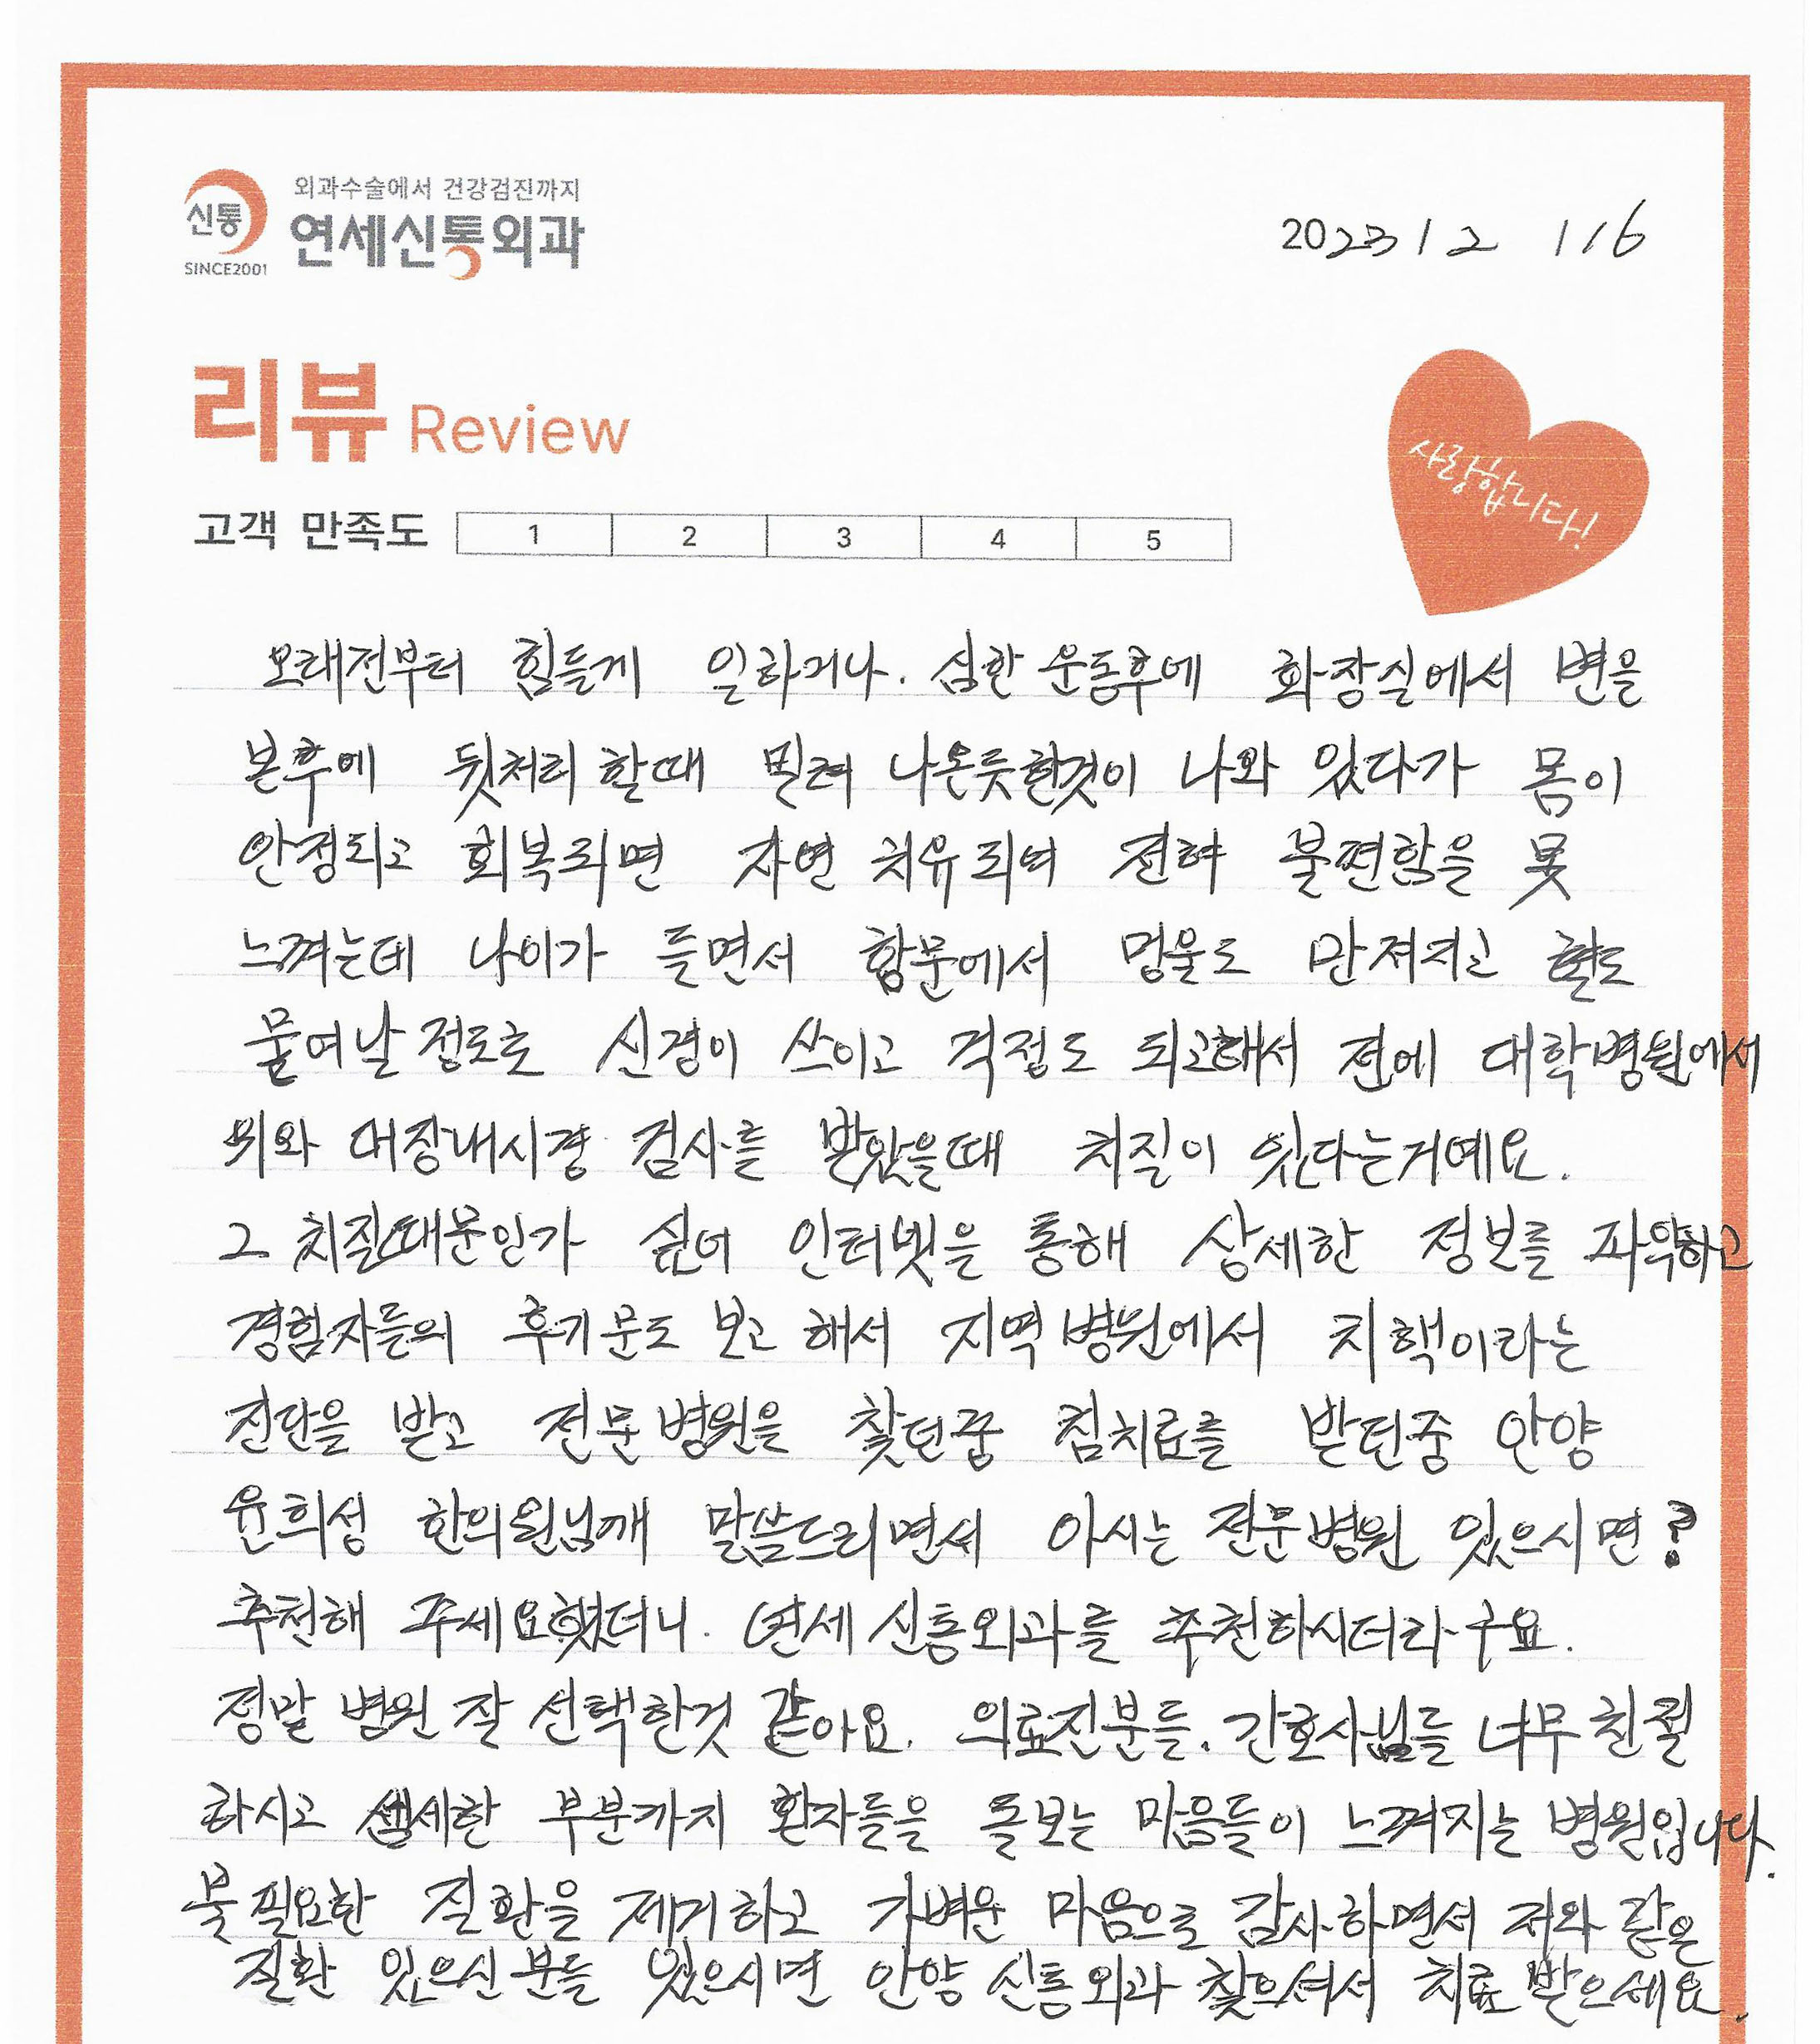 외과수술에서 건강검진까지
신통 연세신통외과
SINCE2001
2023 12 1/6
리뷰 Review
사랑합니다!
고객 만족도 1 2 3 4 5
오래전부터 힘들게 일하거나. 심한 운동후에 화장실에서 변을
본후에 뒷처리 할때 밀려 나온듯한것이 나와 있다가 몸이
안정되고 회복되면 자연 치유되여 전혀 불편함을 못
느껴는데 나이가 들면서 항문에서 멍울도 만져지고 혈도
뭍여날 정도로 신경이 쓰이고 걱정도 되고해서 전에 대학병원에서
위와 대장내시경 검사를 받았을때 치질이 있다는거예요.
그 치질때문인가 싶너 인터넷을 통해 상세한 정보를 파악하고
경험자들의 후기문도 보고 해서 지역병원에서 치핵이라는
진단을 받고 전문병원을 찿던중 침치료를 받던중 안양
윤희성 한의원님깨 말씀드리면서 아시는 전문병원 있으시면?
추천해 주세요했더니. 연세신통외과를 추천하시더라구요.
정말 병원 잘 선택한것 같아요. 의료진분들. 간호사님들 너무 친절
하시고 섬세한 부분까지 환자들을 돌보는 마음들이 느껴지는 병원입니다.
불필요한 질환을 제거하고 가벼운 마음으로 감사하면서 저와 같은
질환 있으신분들 있으시면 안양 신통외과 찿으셔서 치료 받으세요.